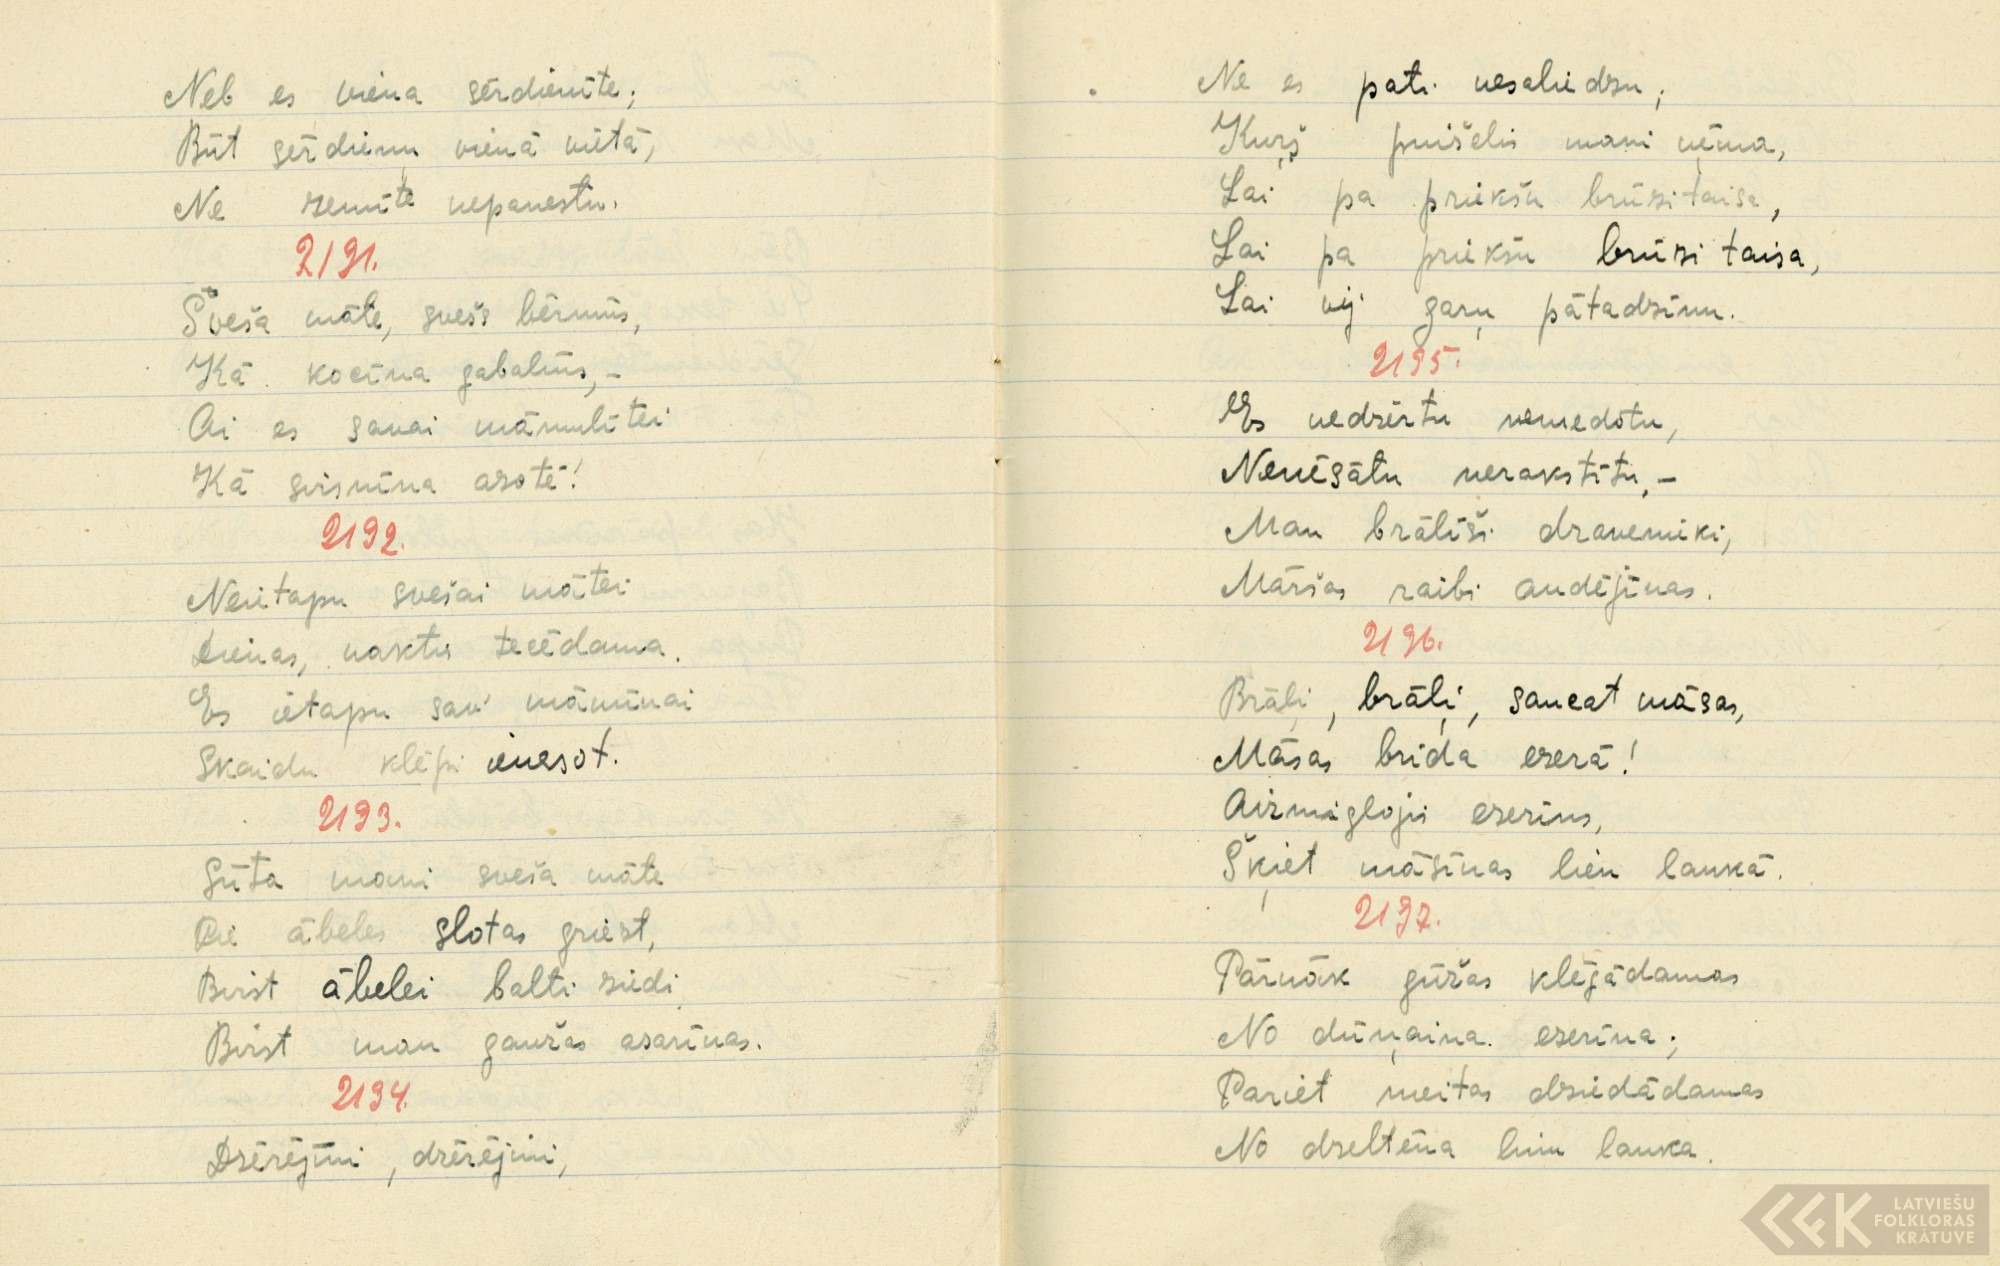 Neb es viena sērdienīte;
Būt sērdieņu vienā vietā,
Ne zemīte nepanestu.
2191.
Sveša māte, svešs bērniņš,
Kā kociņa gabaliņš,–
Ai es savai māmulītei
Kā sirsniņa azotē!
2192.
Neietapu svešai mātei
Dienas, naktis tecēdama.
Es ietapu sav' māmiņai
Skaidu klēpi ienesot.
2193.
Sūta mani sveša māte
Pie ābeles slotas griezt,
Birst ābelei balti ziedi
Birst man gaužas asariņas.
2194.
Dzērējiņi, dzērējiņi,
Ne es pati nesaliedzu;
Kuŗš puišelis mani ņēma,
Lai pa priekšu brūzi taisa,
Lai pa priekšu brūzi taisa,
Lai vij gaŗu pātadziņu.
2195.
Es nedzērtu nemedotu,
Nenēsātu nerakstītu,–
Man brālīši dravenieki,
Māršas raibi audējiņas.
2196.
Brāļi, brāļi, saucat māsas,
Māsas brida ezerā!
Aizmiglojis ezeriņš,
Šķiet māsiņas linu laukā.
2197.
Pārnāk gūžas klēgādamas
No dūņaina ezeriņa;
Pariet meitas dziedādamas
No dzeltēna linu lauka.
LATVIEŠU
FOLKLORAS
KRĀTUVE